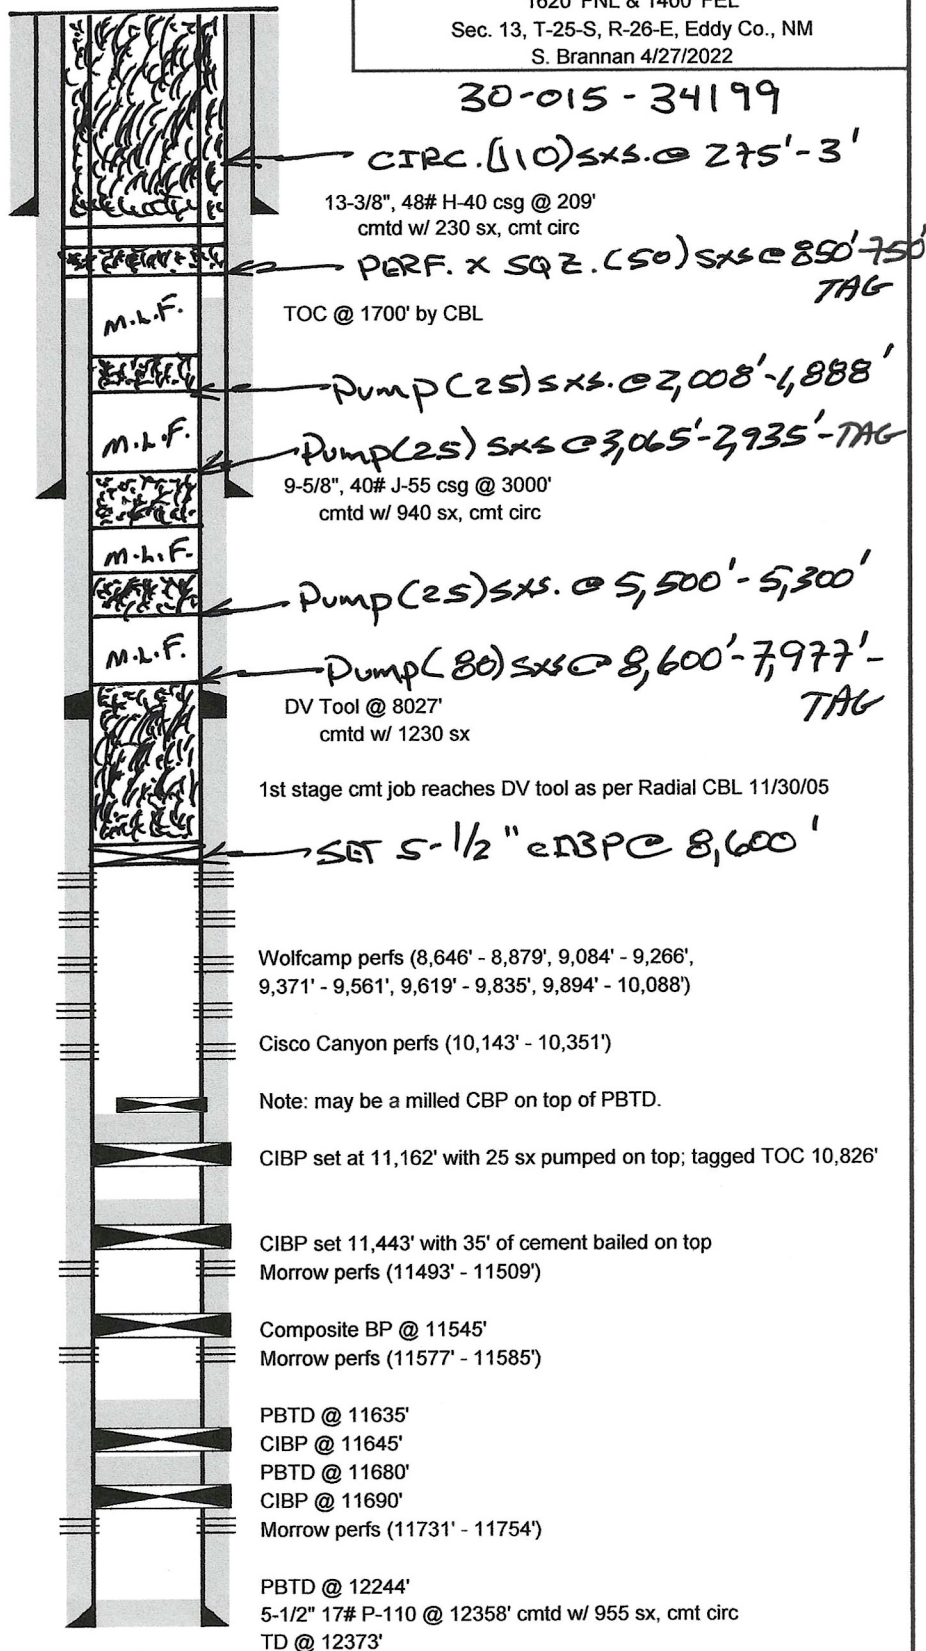 1620' FNL & 1400' FEL
Sec. 13, T-25-S, R-26-E, Eddy Co., NM
S. Brannan 4/27/2022
30-015-34199
CIRC. (110) SXS. @ 275'-3'
13-3/8", 48# H-40 csg @ 209'
cmtd w/ 230 sx, cmt circ
PERF. X SQZ. (50) SXS @ 850'-750'
TAG
M.L.F.
TOC @ 1700' by CBL
Pump (25) SXS. @ 2,008'-1,888'
M.L.F.
Pump (25) SXS @ 3,065'-2,935'-TAG
9-5/8", 40# J-55 csg @ 3000'
cmtd w/ 940 sx, cmt circ
M.L.F.
Pump (25) SXS. @ 5,500'-5,300'
M.L.F.
Pump (80) SXS @ 8,600'-7,977'-
TAG
DV Tool @ 8027'
cmtd w/ 1230 sx
1st stage cmt job reaches DV tool as per Radial CBL 11/30/05
SET 5-1/2" CIBP @ 8,600'
Wolfcamp perfs (8,646' - 8,879', 9,084' - 9,266',
9,371' - 9,561', 9,619' - 9,835', 9,894' - 10,088')
Cisco Canyon perfs (10,143' - 10,351')
Note: may be a milled CBP on top of PBTD.
CIBP set at 11,162' with 25 sx pumped on top; tagged TOC 10,826'
CIBP set 11,443' with 35' of cement bailed on top
Morrow perfs (11493' - 11509')
Composite BP @ 11545'
Morrow perfs (11577' - 11585')
PBTD @ 11635'
CIBP @ 11645'
PBTD @ 11680'
CIBP @ 11690'
Morrow perfs (11731' - 11754')
PBTD @ 12244'
5-1/2" 17# P-110 @ 12358' cmtd w/ 955 sx, cmt circ
TD @ 12373'